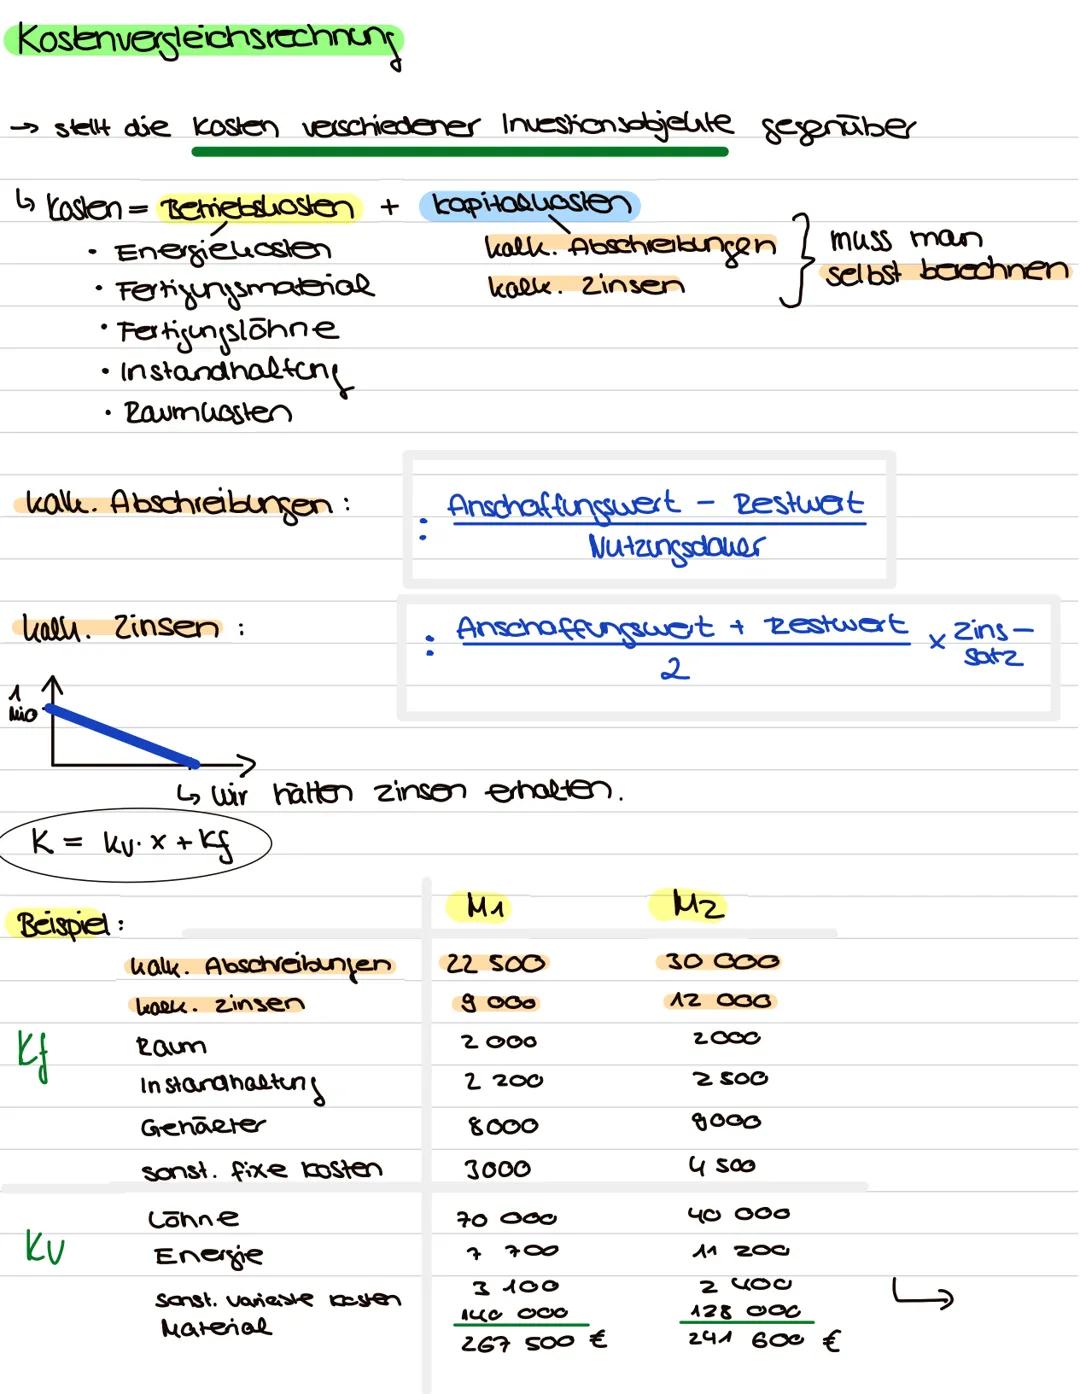 Kostenvergleichsrechnung
→ stellt die Kosten verschiedener Investionsobjekte gegenüber
↳ Kosten = Betriebskosten + Kapitalkosten
• Energiekosten
• Fertigungsmaterial
• Fertigungslöhne
• Instandhaltung
• Raumkosten
kalk. Abschreibungen
kalk. Zinsen
muss man
selbst berechnen
kalk. Abschreibungen :
: Anschaffungswert - Restwert
Nutzungsdauer
kalk. Zinsen :
: Anschaffungswert + Restwert x Zins-
satz
2
1
Mio
↳ Wir hätten Zinsen erhalten.
K = kv · x + Kf
Beispiel : M1 M2
kalk. Abschreibungen 22 500 30 000
kalk. Zinsen 9 000 12 000
Kf Raum 2 000 2000
Instandhaltung 2 200 2 500
Gehälter 8000 9000
sonst. fixe Kosten 3000 4 500
Löhne 70 000 40 000
Kv Energie 7 700 11 200
sonst. variable Kosten 3 100 2 400
Material 140 000 128 000
267 500 € 241 600 €